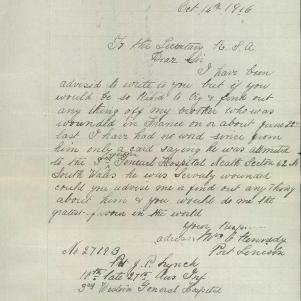 Oct 16th 1916
To the Secretary R.S.A
Dear Sir
I have been
advised to write to you but if you
would be so kind to try & find out
any thing off my brother who was
wounded in France on a about June 22nd
last I have had no word since from
him only a card saying he was admited
to the 3rd General Hospital Neath Section
South Wales he was wounded
could you advise me a find out any thing
about him & you would do me the
gratest favour in the world
Yours
Mrs C Kennedy
Port
No 2719B
Pte J. P. Lynch
10th late 27th Aus Inf
3rd Western General Hospital